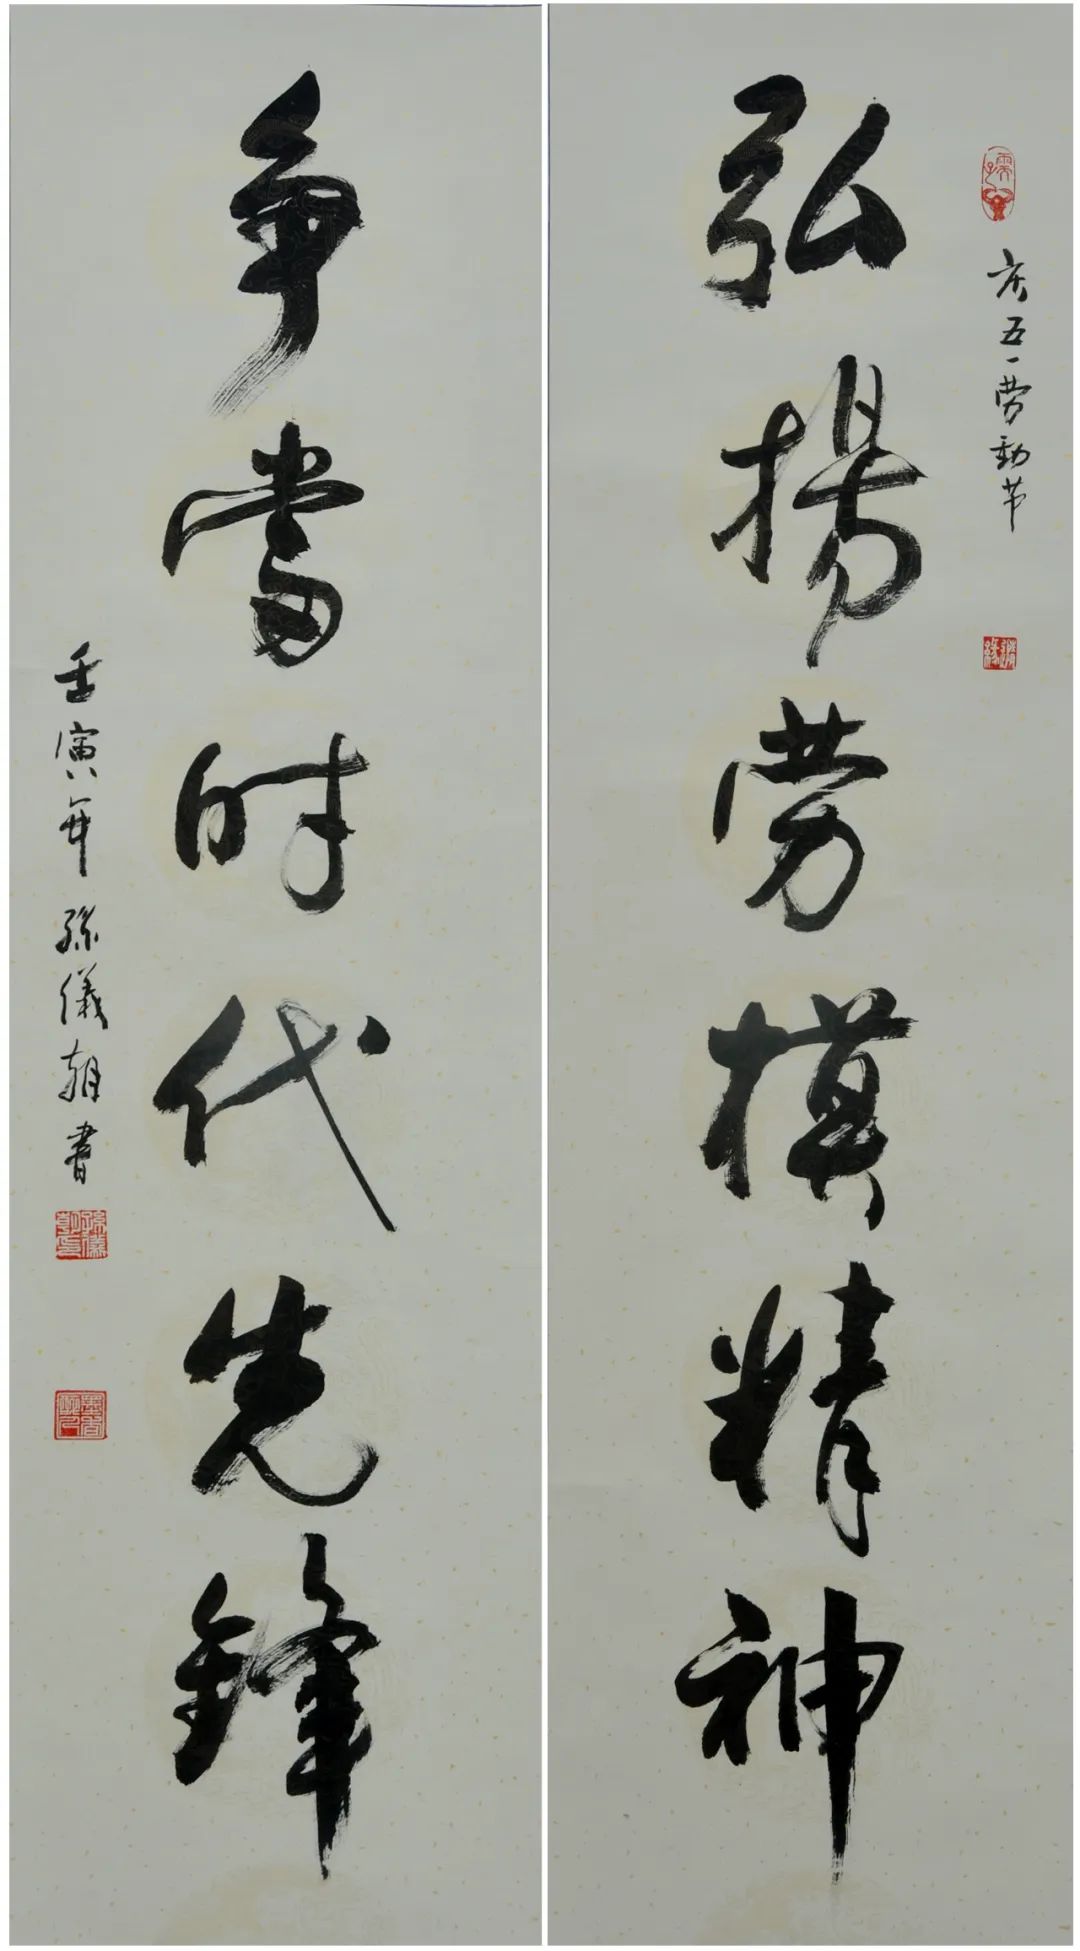 庆五一劳動节
弘揚劳模精神
争當时代先鋒
壬寅年孫儀朝書